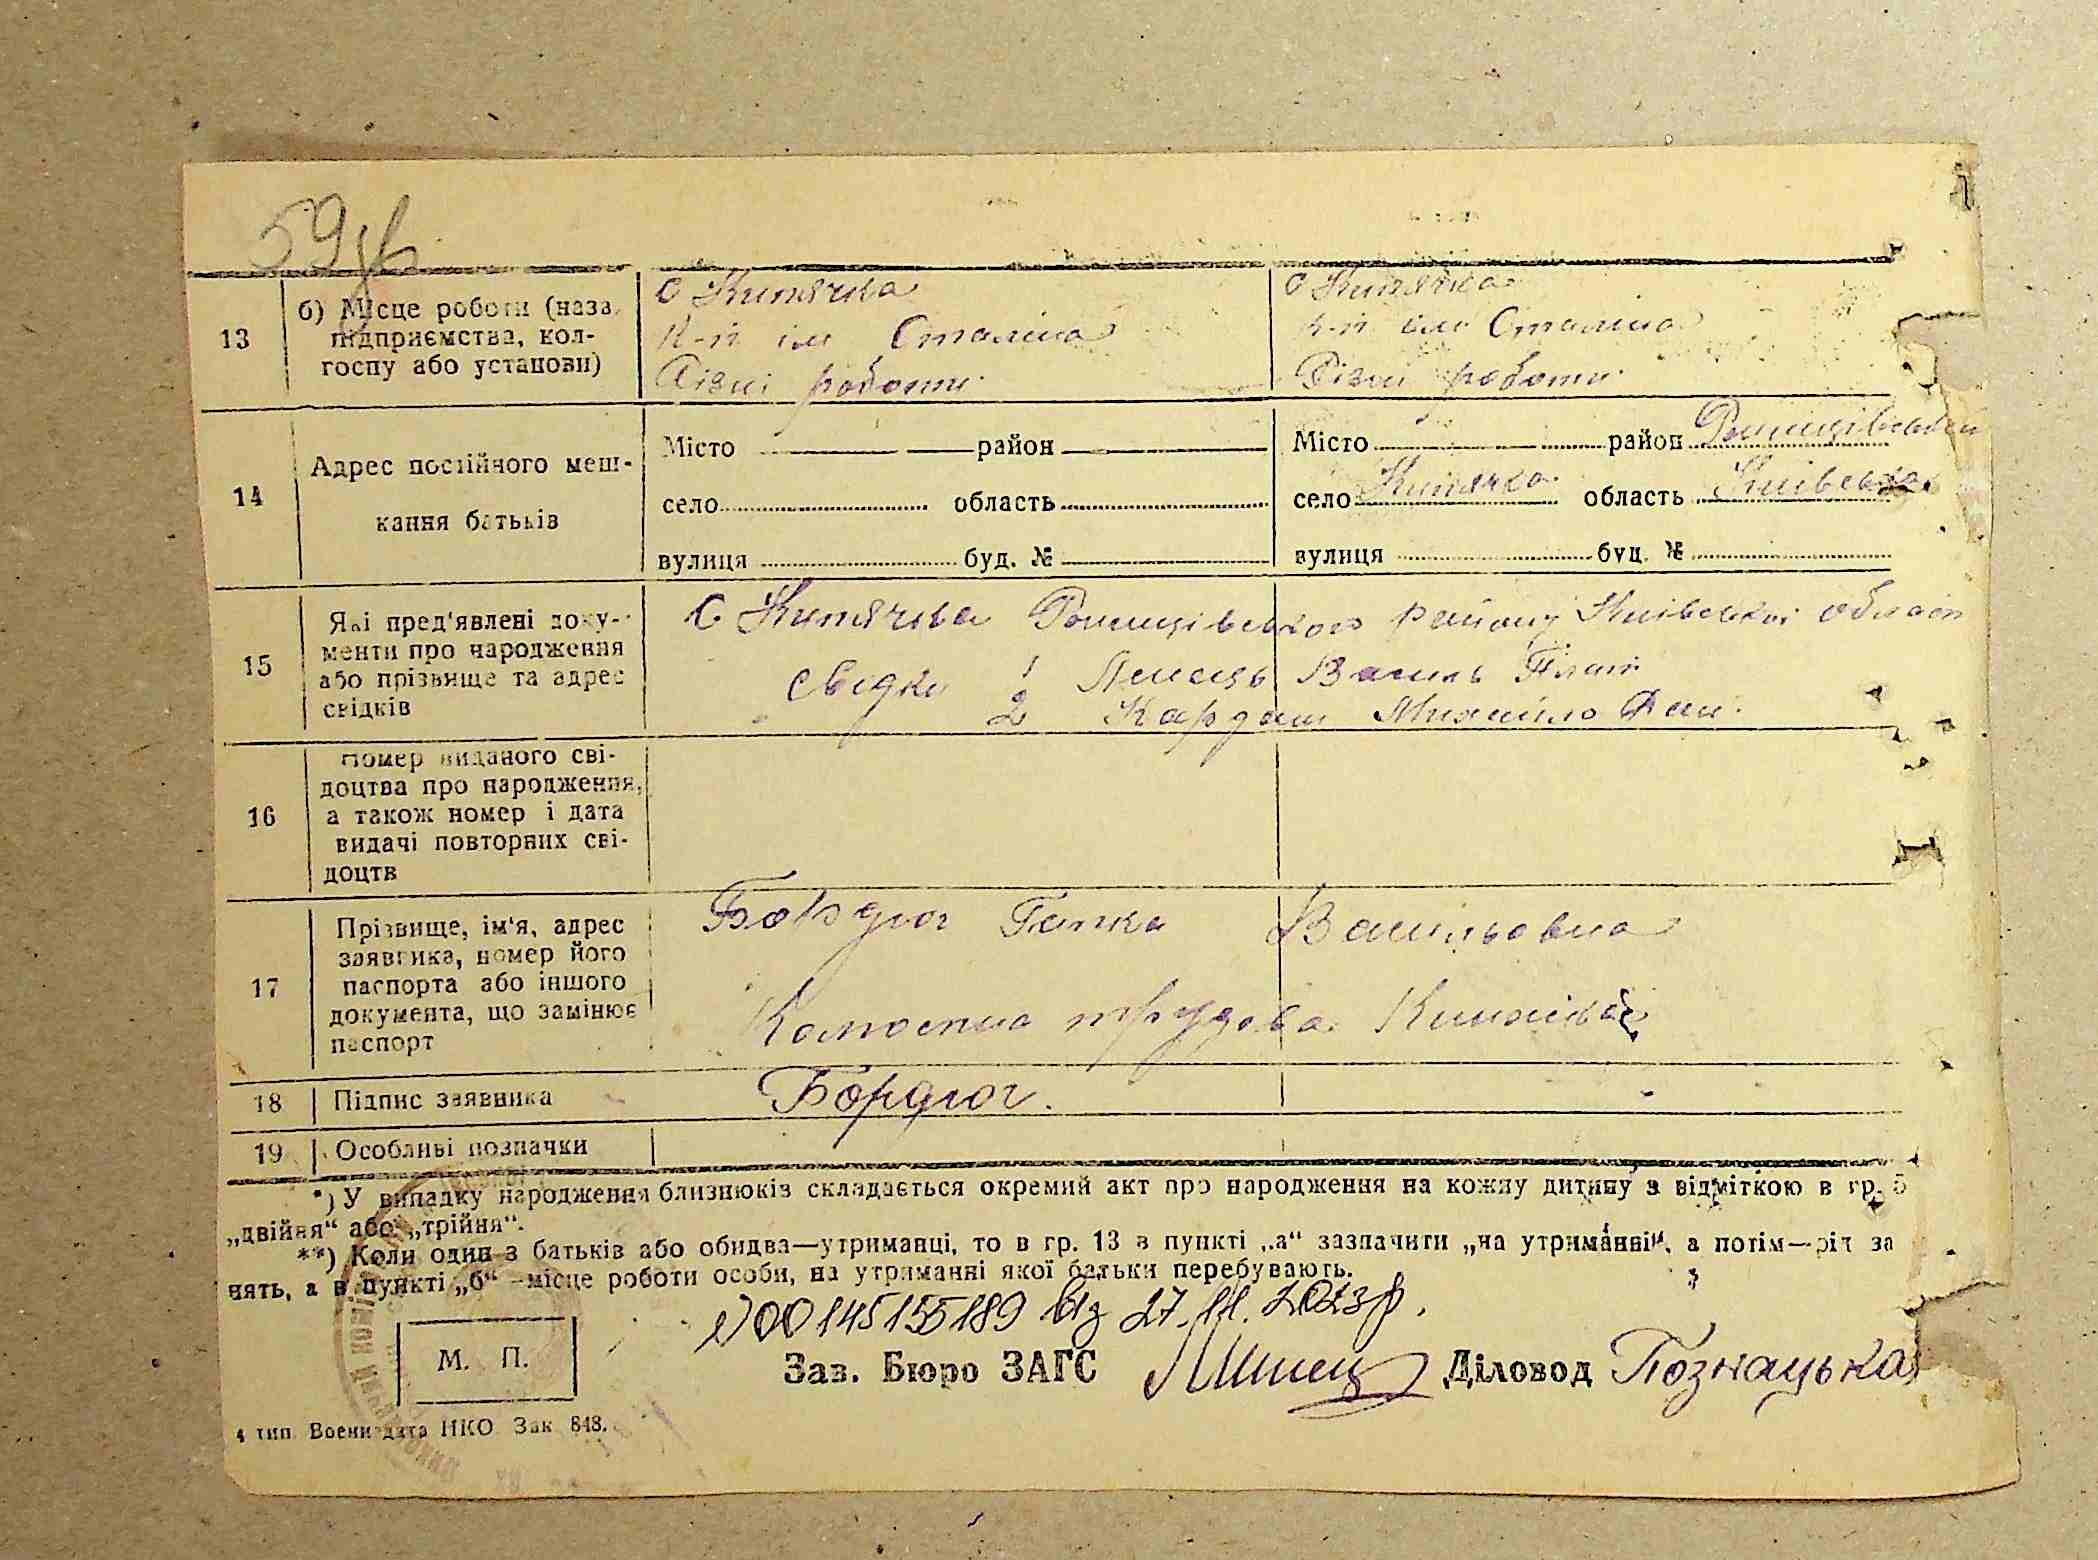 59 зв
13 б) Місце роботи (назва підприємства, колгоспу або установи)
с Кипячка
к-п ім Сталіна
Різні роботи
с Кипячка
к-п ім Сталіна
Різні роботи
14 Адрес постійного мешкання батьків
Місто район
село область
вулиця буд. №
Місто район
село Кипячка область Київська
вулиця буд. №
15 Які пред'явлені документи про народження або прізвище та адрес свідків
С Кипячка району Київської област
свідки 1 Василь Плат
2 Кардаш Михайло Дем.
16 Номер виданого свідоцтва про народження, а також номер і дата видачі повторних свідоцтв
17 Прізвище, ім'я, адрес заявника, номер його паспорта або іншого документа, що замінює паспорт
Бордюг Гапка Васильовна
Колгоспна трудова Книжка
18 Підпис заявника
Бордюг.
19 Особливі позначки
*) У випадку народження близнюків складається окремий акт про народження на кожну дитину з відміткою в гр. 5
„двійня“ або „трійня“.
**) Коли один з батьків або обидва—утриманці, то в гр. 13 в пункті „а“ зазначити „на утриманні“, а потім—рід за
нять, а в пункті „б“ —місце роботи особи, на утриманні якої батьки перебувають.
№00145155189 від 27.11.2023р.
М. П.
Зав. Бюро ЗАГС Діловод Познацька
4 тип. Воениздата НКО Зак 848.